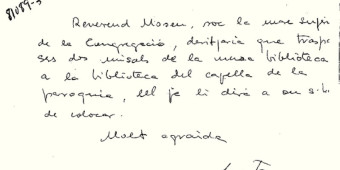 81089-5
Reverend Mossen, soc la mare Supe
de la Congregació, desitjaria que traspa
ses dos misals de la meva biblioteca
a la biblioteca del capella de la
paroquia, ell ja li dirà a on s. h.
de colocar.
Molt agraida